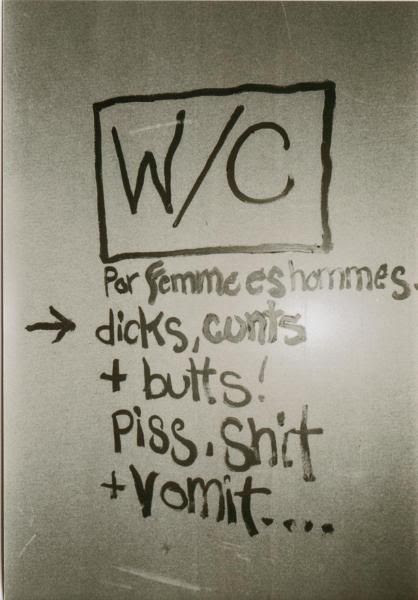 W/C
Por femme es hommes.
→ dicks, cunts
+ butts!
piss, shit
+ vomit....